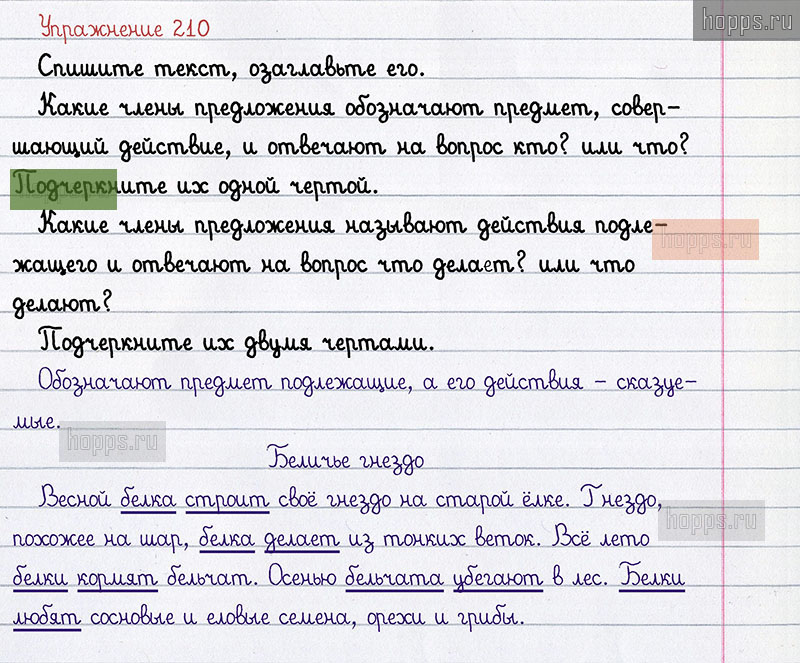 hopps.ru
Упражнение 210
Спишите текст, озаглавьте его.
Какие члены предложения обозначают предмет, совер-
шающий действие, и отвечают на вопрос кто? или что?
Подчеркните их одной чертой.
Какие члены предложения называют действия подле-
hopps.ru
жащего и отвечают на вопрос что делает? или что
делают?
Подчеркните их двумя чертами.
Обозначают предмет подлежащие, а его действия – сказуе-
мые.
hopps.ru
Беличье гнездо
Весной белка строит своё гнездо на старой ёлке. Гнездо,
hopps.ru
похожее на шар, белка делает из тонких веток. Всё лето
белки кормят бельчат. Осенью бельчата убегают в лес. Белки
любят сосновые и еловые семена, орехи и грибы.